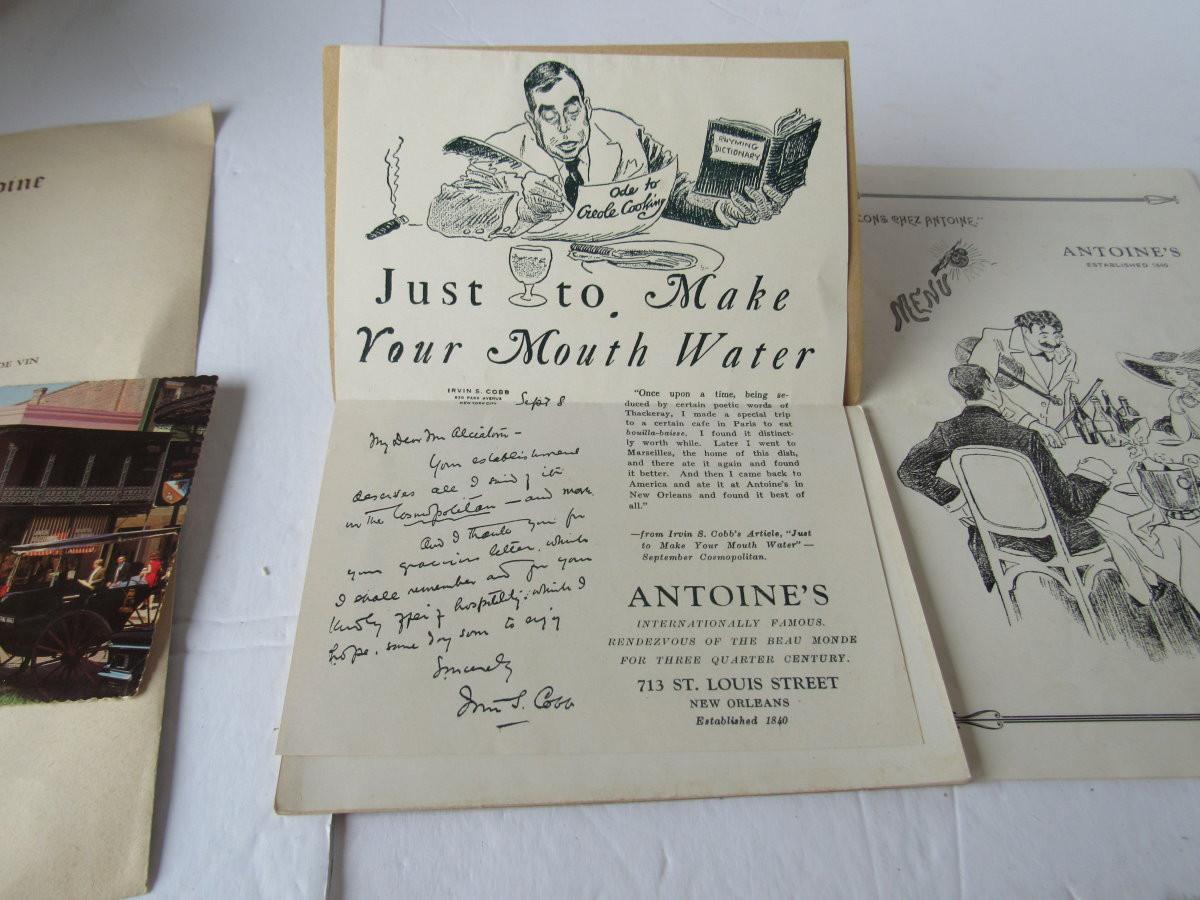 DE VIN
RHYMING
DICTIONARY
Ode to
Creole Cooking
Just to Make
Your Mouth Water
IRVIN S. COBB
PARK AVENUE
NEW YORK CITY
Sept 8
My Dear Mr Alciatore —
Your establishment
deserves all I said of it
in the Cosmopolitan — and more.
And I thank you for
your gracious letter, which
I shall remember and for your
kindly offer of hospitality, which I
hope, some day soon to enjoy
Sincerely
Irvin S. Cobb
"Once upon a time, being se-
duced by certain poetic words of
Thackeray, I made a special trip
to a certain cafe in Paris to eat
bouilla-baisse. I found it distinct-
ly worth while. Later I went to
Marseilles, the home of this dish,
and there ate it again and found
it better. And then I came back to
America and ate it at Antoine's in
New Orleans and found it best of
all."
—from Irvin S. Cobb's Article, "Just
to Make Your Mouth Water"—
September Cosmopolitan.
ANTOINE'S
INTERNATIONALLY FAMOUS.
RENDEZVOUS OF THE BEAU MONDE
FOR THREE QUARTER CENTURY.
713 ST. LOUIS STREET
NEW ORLEANS
Established 1840
CHEZ ANTOINE."
ANTOINE'S
ESTABLISHED 1840
MENU